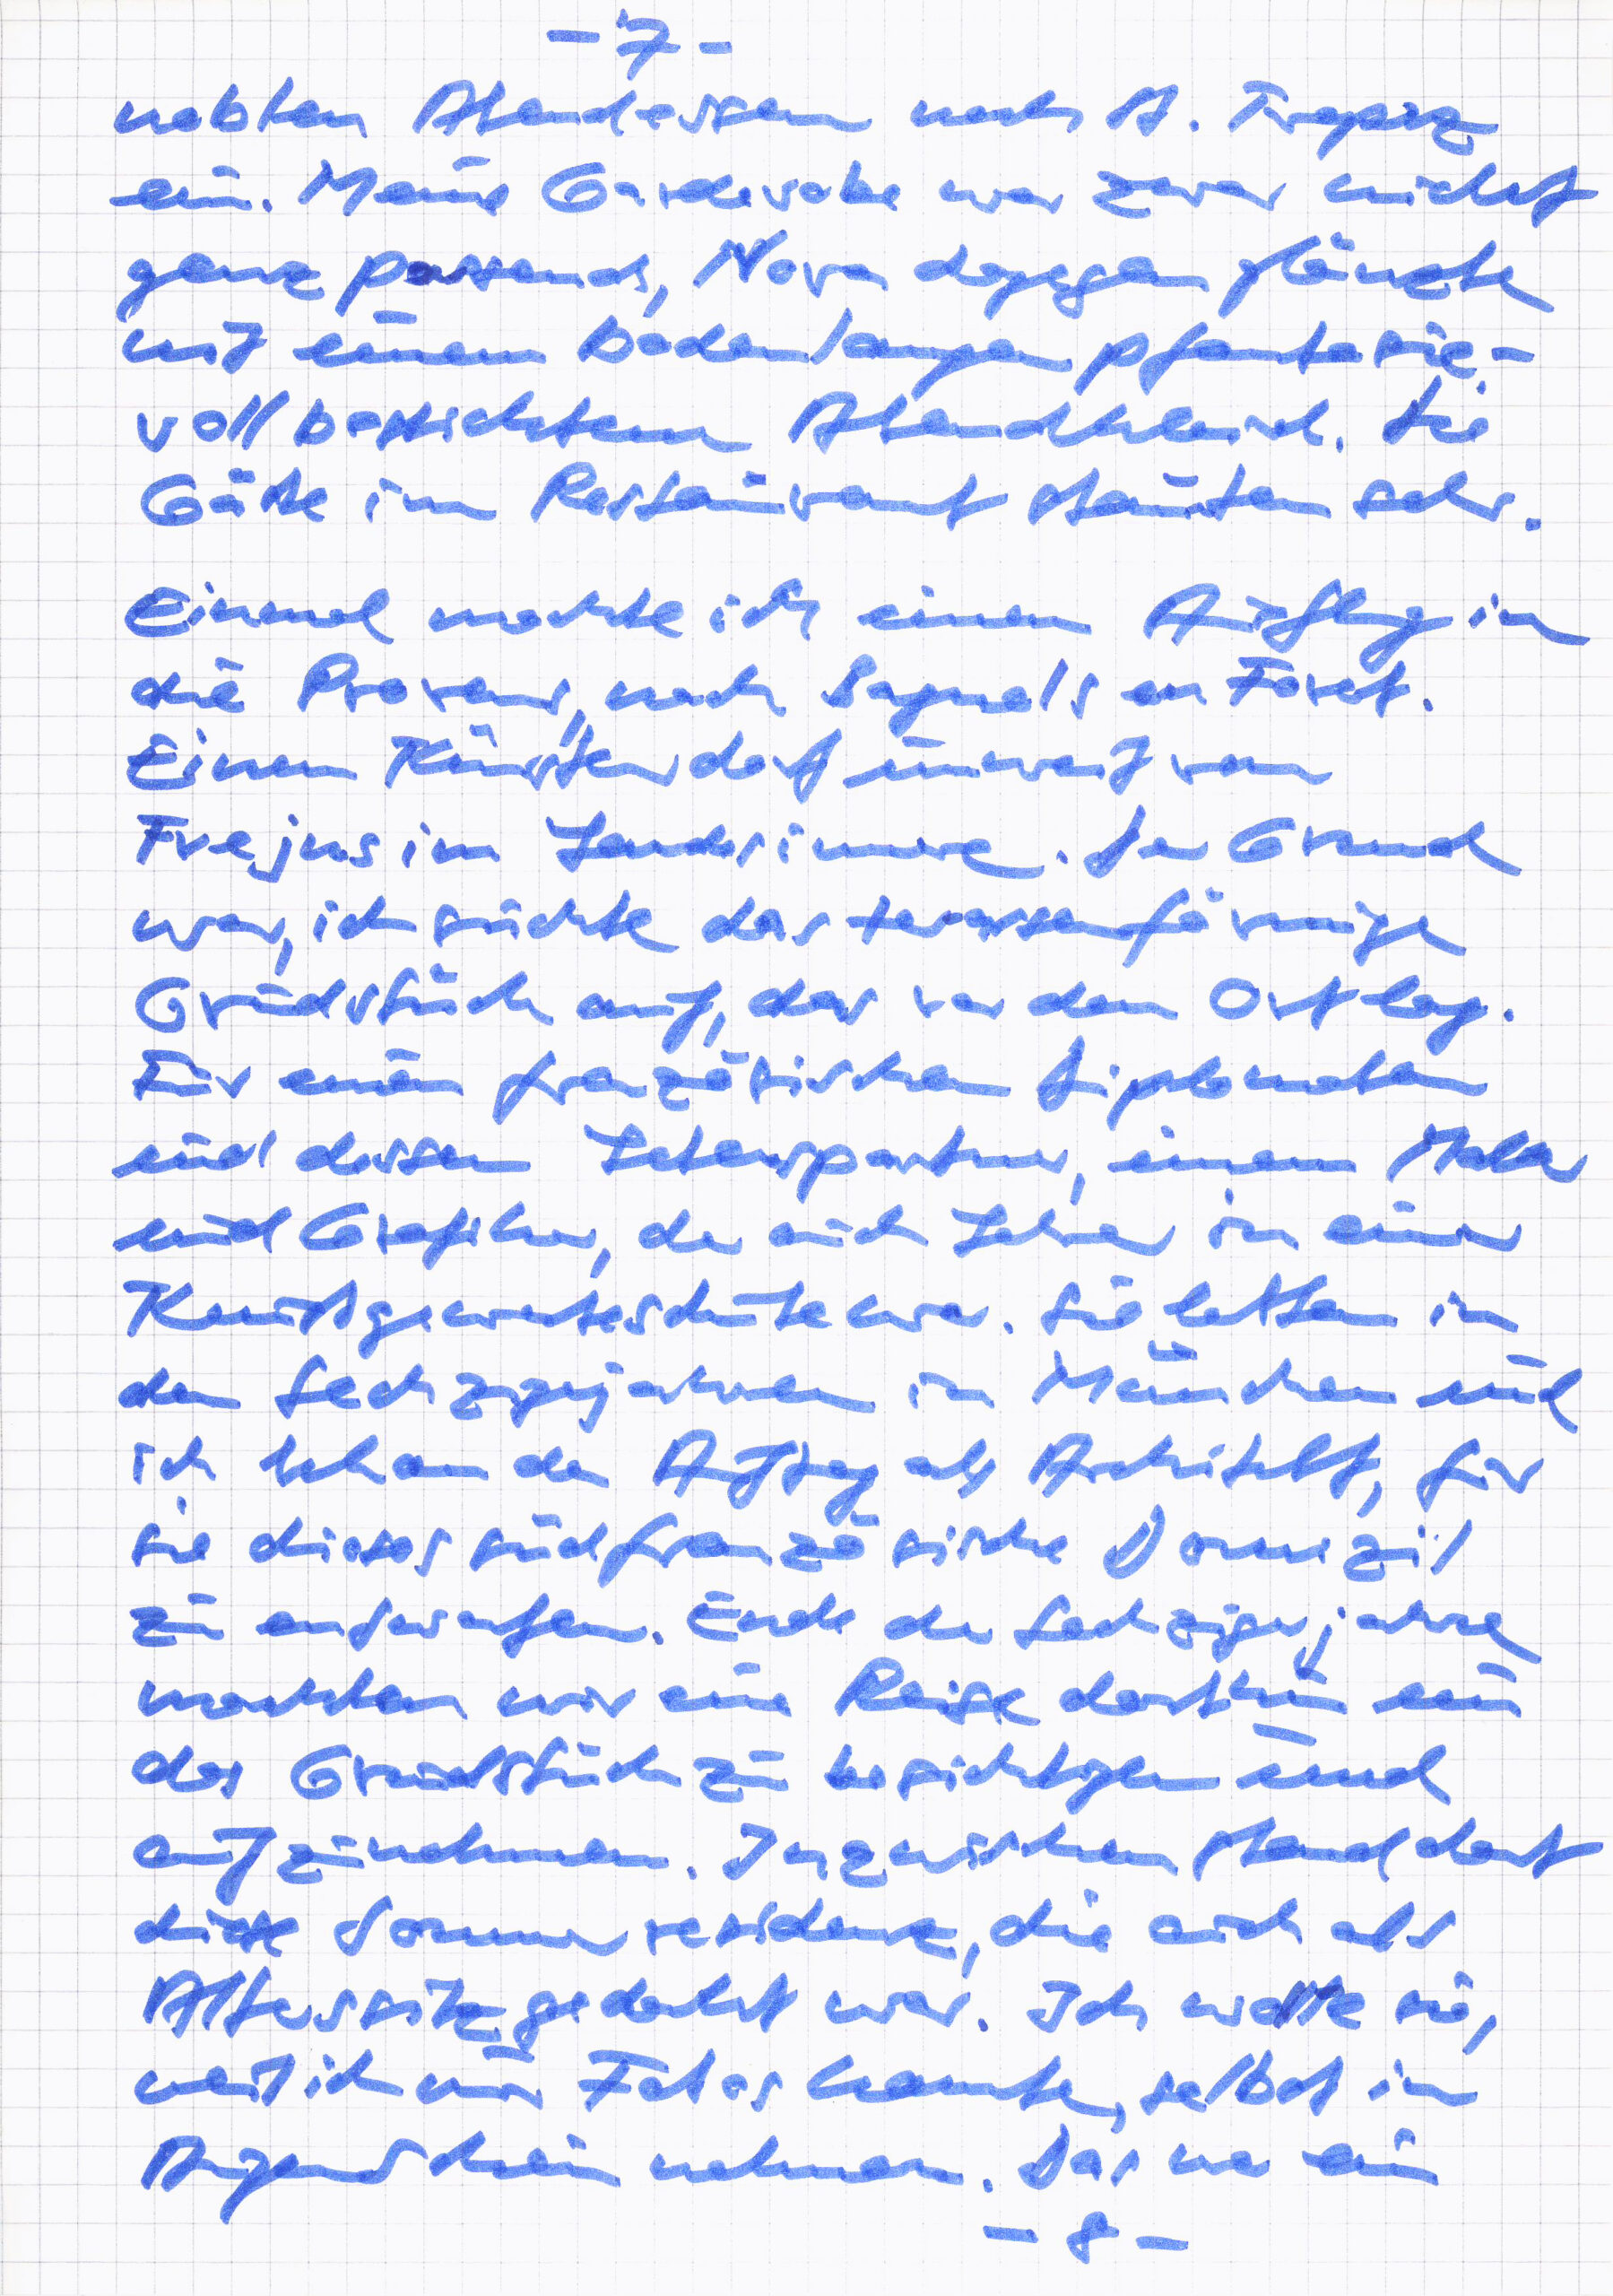 - 7 -
noblen Abendessen nach St. Tropez
ein. Meine Garderobe war zwar nicht
ganz passend, Nora dagegen glänzte
mit einem bodenlangen phantasie-
voll bestickten Abendkleid. Die
Gäste im Restaurant staunten sehr.
Einmal machte ich einen Ausflug in
die Provence, nach Bagnols en Foret.
Einem Künstlerdorf unweit von
Frejus im Landesinnere. Der Grund
war, ich suchte das terassenförmige
Grundstück auf, das vor dem Ort lag.
Für einen französischen Diplomaten
und dessen Lebenspartner, einem Maler
und Grafiker, der auch Lehrer in einer
Kunstgewerbeschule war. Sie lebten in
den Sechzigerjahren in München und
ich bekam den Auftrag als Architekt, für
sie dieses südfranzösische Domizil
zu entwerfen. Ende der Sechzigerjahre
machten wir eine Reise dorthin um
das Grundstück zu besichtigen und
aufzunehmen. Inzwischen stand dort
diese Sommerresidenz, die auch als
Alterssitz gedacht war. Ich wollte sie,
weil ich nur Fotos kannte, selbst in
Augenschein nehmen. Das war ein
- 8 -